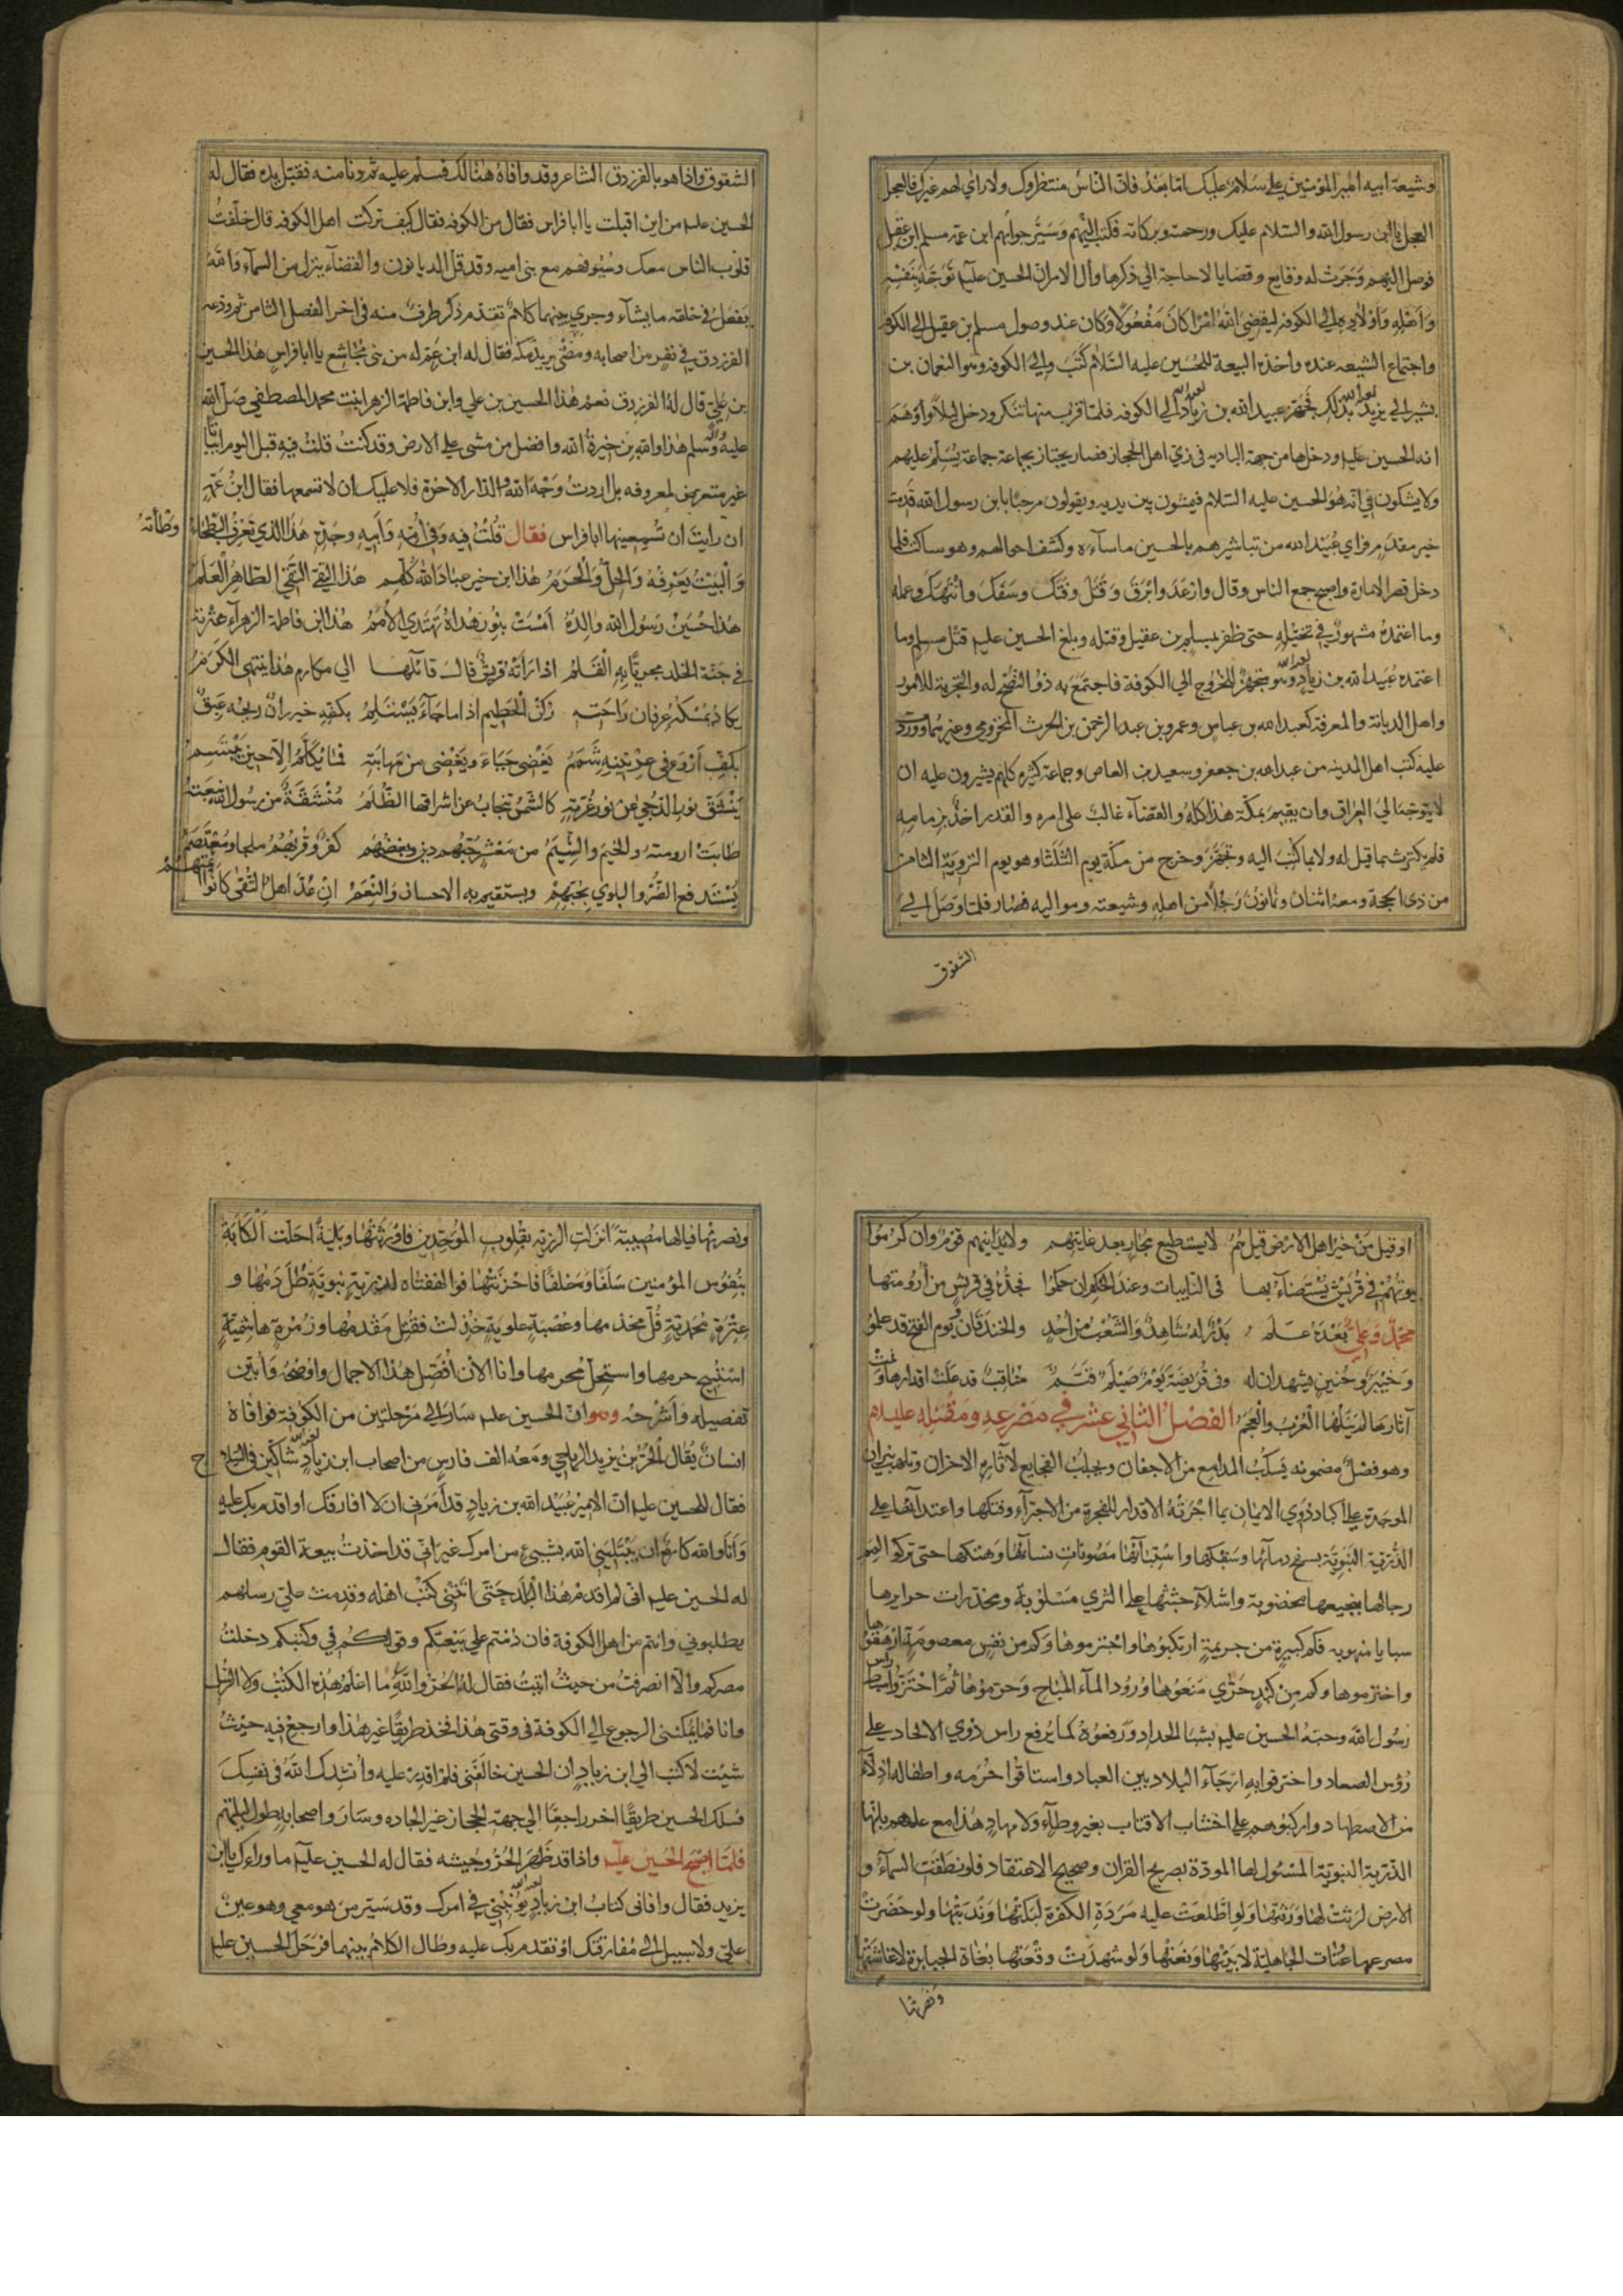 وشيعة ابيه امير المؤمنين علي سلام عليك اما بعد فان الناس منتظروك ولا راي لهم غيرك فالعجل
العجل يا ابن رسول الله والسلام عليك ورحمة وبركاته فكتب اليهم وسير جوابهم ابن عمه مسلم ابن عقيل
فوصل اليهم وجرت له وقايع وقضايا لا حاجة الي ذكرها وآل الامر ان الحسين عليه توجه بنفسه
واهله واولاده الي الكوفه ليقضي الله امرا كان مفعولا وكان عند وصول مسلم بن عقيل الي الكوفه
واجتماع الشيعه عنده واخذه البيعة للحسين عليه السلام كتب والي الكوفه وهو النعمان بن
بشير الي يزيد بذلك فجهز عبيد الله بن زياد الي الكوفه فلما قرب منها تنكر ودخل ليلا واوهم
انه الحسين عليه ودخلها من جهة الباديه في زي اهل الحجاز فصار يجتاز بجماعة جماعة يسلم عليهم
ولا يشكون في انه هو الحسين عليه السلام فيمشون بين يديه ويقولون مرحبا بابن رسول الله قدمت
خير مقدم فراي عبيد الله من تباشيرهم بالحسين ما ساءه وكشف احوالهم وهو ساكت فلما
دخل قصر الامارة واصبح جمع الناس وقال وارعد وابرق وقتل وفتك وسفك وانتهك وعمله
وما اعتمده مشهور في تحيله حتى ظفر بمسلم بن عقيل وقتله وبلغ الحسين عليه قتل مسلم وما
اعتمده عبيد الله بن زياد وهو متجهز للخروج الي الكوفة فاجتمع به ذو النصح له والتجربة للامور
واهل الديانة والمعرفة كعبد الله بن عباس وعمرو بن عبد الرحمن بن الحرث المخزومي وغيرهما ووردت
عليه كتب اهل المدينه من عبد الله بن جعفر وسعيد بن العاص وجماعة كثيره كلهم يشيرون عليه ان
لا يتوجه الي العراق وان يقيم بمكة هذا كله والقضاء غالب على امره والقدر اخذ بزمامه
فلم يكترث بما قيل له ولا بما كتب اليه وتجهز وخرج من مكة يوم الثلثا وهو يوم التروية الثامن
من ذي الحجة ومعه اثنان وثمانون رجلا من اهله وشيعته ومواليه فسار فلما وصل الي
الشقوق
الشقوق واذا هو بالفرزدق الشاعر وقد وافاه هنالك فسلم عليه ثم دنا منه فقبل يده فقال له
الحسين عليه من اين اقبلت يا ابا فراس فقال من الكوفه فقال كيف تركت اهل الكوفه قال خلفت
قلوب الناس معك وسيوفهم مع بني اميه وقد قل الديانون والقضاء ينزل من السماء والله
يفعل في خلقه ما يشاء وجري بينهما كلام تقدم ذكر طرف منه في اخر الفصل الثامن ثم ودعه
الفرزدق في نفر من اصحابه ومضى يريد مكة فقال له ابن عم له من بني مجاشع يا ابا فراس هذا الحسين
بن علي قال له الفرزدق نعم هذا الحسين بن علي وابن فاطمة الزهرا بنت محمد المصطفي صلى الله
عليه وآله وسلم هذا والله بن خيرة الله وافضل من مشى علي الارض وقد كنت قلت فيه قبل اليوم ابياتا
غير متعرض لمعروفه بل اردت وجه الله والدار الاخرة فلا عليك ان لا تسمعها فقال ابن عمه
ان رايت ان تسمعنيها ابا فراس فقال قلت فيه وفي امه وابيه وجده هذا الذي تعرف البطحاء وطأته
والبيت يعرفه والحل والحرم هذا ابن خير عباد الله كلهم هذا التقي النقي الطاهر العلم
هذا حسين رسول الله والده امست بنور هداه تهتدي الامم هذا ابن فاطمة الزهراء عترته
في جنة الخلد مجريا به القلم اذا راته قريش قال قائلها الي مكارم هذا ينتهي الكرم
يكاد يمسكه عرفان راحته ركن الحطيم اذا ما جاء يستلم بكفه خيزران ريحه عبق
بكف اروع في عرنينه شمم يغضي حياء ويغضى من مهابته فما يكلم الا حين يبتسم
ينشق نور الدجي عن نور غرته كالشمس تنجاب عن اشراقها الظلم منشقة من رسول الله نبعته
طابت ارومته والخيم والشيم من معشر حبهم دين وبغضهم كفر وقربهم ملجا ومعتصم
يستدفع الضر والبلوي بحبهم ويستقيم به الاحسان والنعم ان عد اهل التقى كانوا ائمتهم
او قيل من خير اهل الارض قيل هم لا يستطيع مجار بعد غايتهم ولا يدانيهم قوم وان كرموا
بيوتهم في قريش يستضاء بها في النايبات وعند الحكم ان حكموا فجده في قريش من ارومتها
محمد وعلي بعده علم بدر له شاهد والشعب من احد والخندقان ويوم الفتح قد علموا
وخيبر وحنين يشهدان له وفي قريضة يوم صيلم قتم مناقب قد علت اقدارها ونمت
آثارها لم ينلها العرب والعجم الفصل الثاني عشر في مصرعه ومقتله عليه السلام
وهو فصل مضمونه يسكب المدامع من الاجفان ويجلب الفجايع لاثارة الاحزان ويلهب نيران
الموجدة علي اكباد ذوي الايمان بما اجرته الاقدار للفجرة من الاجتراء وفتكها واعتدائها علي
الذرية النبوية بسفح دمائها وسفكها واستبائها مصونات نسائها وهتكها حتى تركوا لمم
رجالها بنجيعها مخضوبة واشلاء جثثها علي الثري مسلوبة ومخدرات حرايرها
سبايا منهوبه فكم كبيرة من جريمة ارتكبوها واجترموها وكم من نفس معصومة ازهقوها
واخترموها وكم من كبد حري منعوها ورود الماء المباح وحرموها ثم احتزوا راس سبط
رسول الله وحبه الحسين عليه بشبا الحداد ورفعوه كما يرفع راس ذوي الالحاد علي
رؤس الصعاد واخترقوا به ارجاء البلاد بين العباد واستاقوا حرمه واطفاله اذلاء
من الاضطهاد واركبوهم علي اخشاب الاقتاب بغير وطاء ولا مهاد هذا مع علمهم بانها
الذرية النبوية المسئول لها المودة بصريح القران وصحيح الاعتقاد فلو نطقت السماء و
الارض لرثت لها ورثتها ولو اطلعت عليه مردة الكفرة لبكتها وندبتها ولو حضرت
مصرعها عتات الجاهلية لابنتها ونعتها ولو شهدت وقعتها بغاة الجبابرة لاغاثتها
ونصرتها
ونصرتها فيالها مصيبة انزلت الرزيه بقلوب الموحدين فاورثتها وبلية احلت الكابة
بنفوس المؤمنين سلفا وخلفا فاحزنتها فوا لهفتاه لذرية نبوية طل دمها و
عترة محمدية فل مخذمها وعصبة علوية خذلت فقتل مقدمها وزمرة هاشمية
استبيح حرمها واستحل محرمها وانا الان افصل هذا الاجمال واوضحه وابين
تفصيله واشرحه وهو ان الحسين عليه سار الي مرحلتين من الكوفة فوافاه
انسان يقال له الحر بن يزيد الرياحي ومعه الف فارس من اصحاب ابن زياد شاكين في السلاح
فقال للحسين عليه ان الامير عبيد الله بن زياد قد امرني ان لا افارقك او اقدم بك عليه
وانا والله كاره ان يبتليني الله بشيئ من امرك غير اني قد اخذت بيعة القوم فقال
له الحسين عليه اني لم اقدم هذا البلد حتى اتتني كتب اهله وقدمت علي رسلهم
يطلبوني وانتم من اهل الكوفة فان دمتم علي بيعتكم وقولكم في كتبكم دخلت
مصركم والا انصرفت من حيث اتيت فقال له الحر والله ما اعلم هذه الكتب ولا الرسل
وانا فما يمكنني الرجوع الي الكوفة في وقتي هذا فخذ طريقا غير هذا وارجع فيه حيث
شئت لاكتب الي ابن زياد ان الحسين خالفني فلم اقدر عليه وانشدك الله في نفسك
فسلك الحسين طريقا اخر راجعا الي جهة الحجاز غير الجاده وسار واصحابه طول ليلتهم
فلما اصبح الحسين عليه واذا قد ظهر الحر وجيشه فقال له الحسين عليه ما وراءك يا ابن
يزيد فقال وافاني كتاب ابن زياد يؤنبني في امرك وقد سير من هو معي وهو عين
علي ولا سبيل الي مفارقتك او تقدم بك عليه وطال الكلام بينهما فرحل الحسين عليه